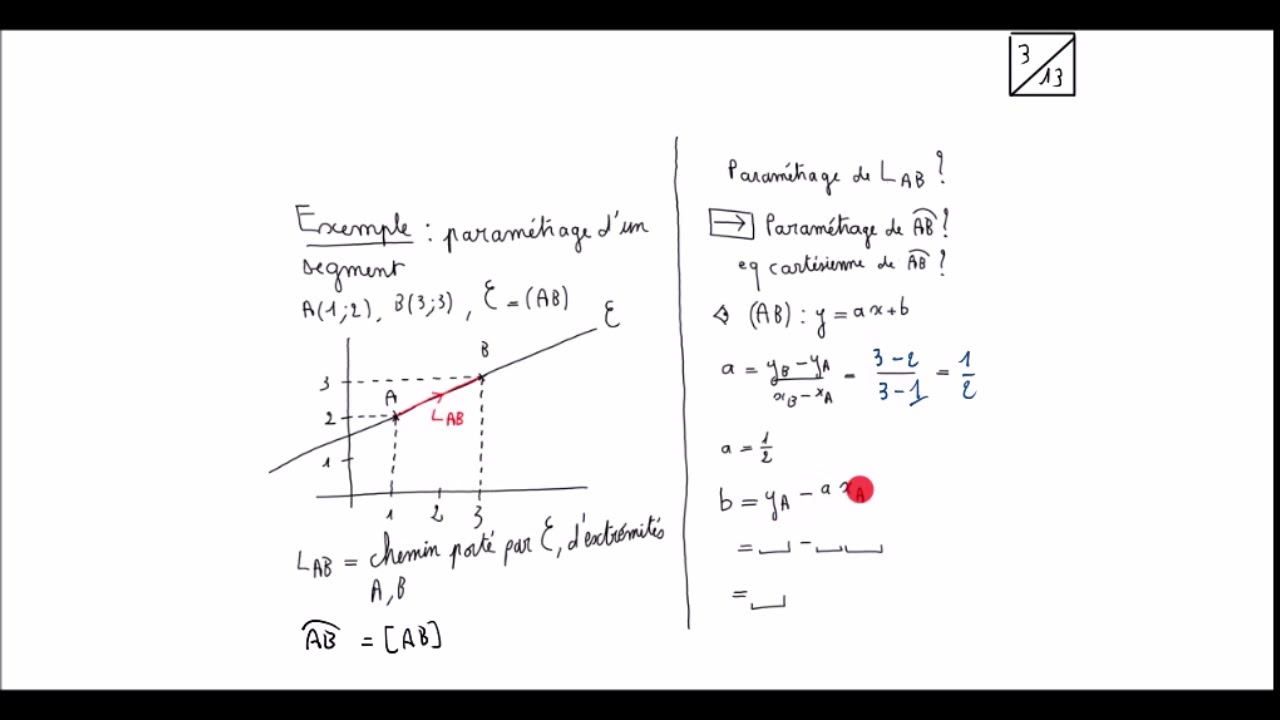 3/13
Exemple : paramétrage d'un
segment
A(1;2), B(3;3), ℰ = (AB)
ℰ
B
3
A
2
L_AB
1
1 2 3
L_AB = chemin porté par ℰ, d'extrémités
A, B
\overset{\frown}{AB} = [AB]
Paramétrage de L_AB ?
→ Paramétrage de \overset{\frown}{AB} ?
eq cartésienne de \overset{\frown}{AB} ?
(AB) : y = ax + b
a = \frac{y_B - y_A}{x_B - x_A} = \frac{3-2}{3-1} = \frac{1}{2}
a = \frac{1}{2}
b = y_A - a x_A
= ⎵ - ⎵⎵
= ⎵